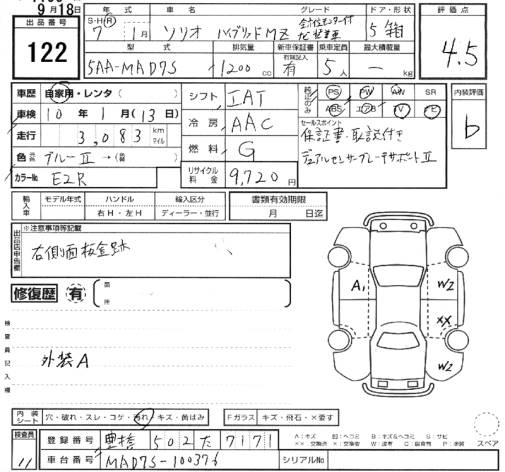 9月18日
出品番号
122
年式 車名 グレード ドア・形状 評価点
S・H・R
7年 1月 ソリオ ハイブリッドMZ 全方位モニター付 5 箱 4.5
型式 排気量 新車保証書 乗車定員 最大積載量
有限記入
5AA-MAD7S 1200cc 有 5人 －kg
車歴 自家用・レンタ( )
車検 10年 1月(13日)
走行 3,083 km マイル
色 元色 ブルーⅡ→( )
カラーNo E2R
シフト IAT
冷房 AAC
燃料 G
リサイクル料金 9,720円
純正のみ PS PW AW SR
ABS エアB TV
セールスポイント
保証書・取説付き
デュアルセンサーブレーキサポートⅡ
内装評価
b
輸入車 モデル年式 ハンドル 輸入区分
年 右H・左H ディーラー・並行
書類有効期限
月 日迄
出品店申告欄
※注意事項等記載
右側面板金跡
修復歴 有
箇所
検査員記入欄
外装A
A1
W2
XX
W2
内装シート 穴・破れ・スレ・コゲ・汚れ・キズ・黄ばみ Fガラス キズ・飛石・X要す
検査員
11
登録番号 豊橋 502 た 7171
車台番号 MAD7S-100376
シリアルNo
A：キズ E：凹ヘコミ B：キズ&ヘコミ S：サビ
スペア